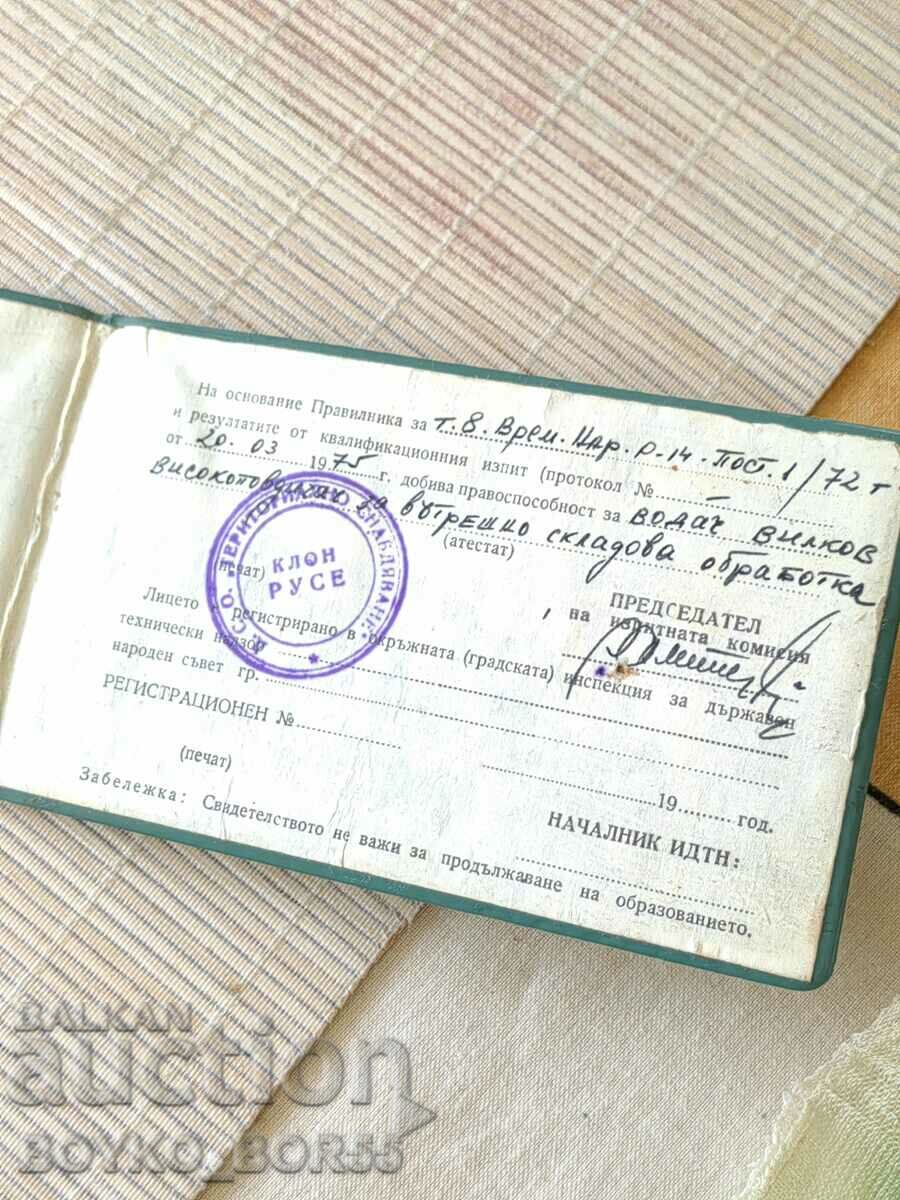 На основание Правилника за т. 8. Врем. Нар. Р-14. Пост. 1/72 г
и резултатите от квалификационния изпит (протокол №
от 20. 03 1975 г. добива правоспособност за водач вилков
високоповдигач за вътрешно складова обработка
(атестат)
(печат)
КЛОН
РУСЕ
ПРЕДСЕДАТЕЛ
на изпитната комисия
Лицето е регистрирано в окръжната (градската) инспекция за държавен
технически надзор
народен съвет гр.
РЕГИСТРАЦИОНЕН №
(печат)
19 год.
НАЧАЛНИК ИДТН:
Забележка: Свидетелството не важи за продължаване на образованието.
BALKAN
auction
BOYKO_BOR55